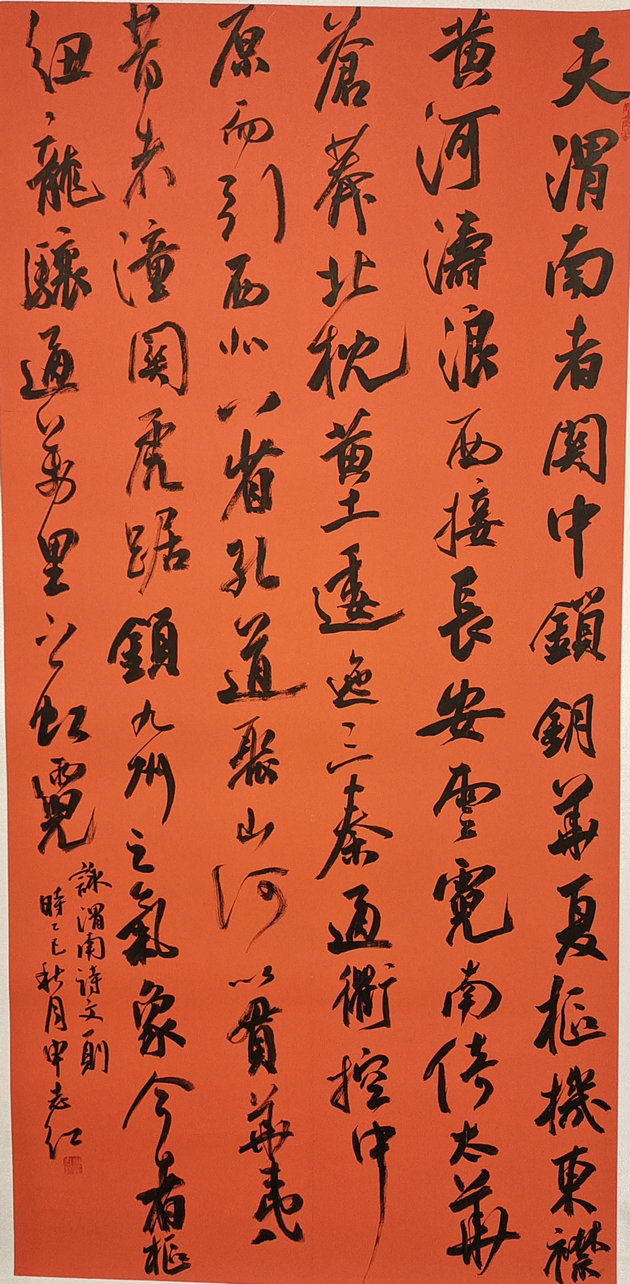 夫渭南者關中鎖鑰華夏樞機東襟
黄河濤浪西接長安雲霓南倚太華
蒼莽北枕黄土逶迤三秦通衢控中
原而引西北八省孔道聚山河以貫華夷
昔者潼関虎踞鎖九州之氣象今者樞
紐龍驤通萬里之虹霓
詠渭南诗文一則
時乙巳秋月申志红